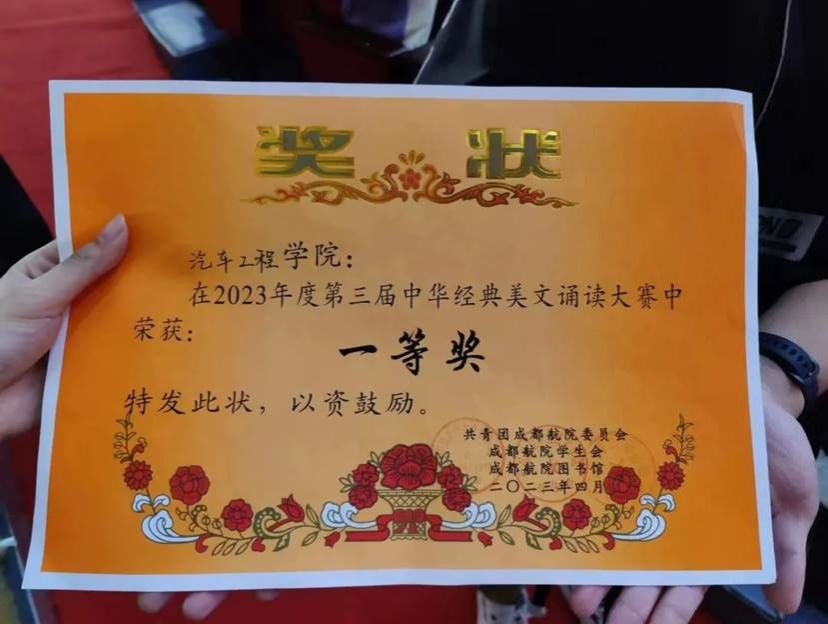 奖状
汽车工程学院：
在2023年度第三届中华经典美文诵读大赛中
荣获：
一等奖
特发此状，以资鼓励。
共青团成都航院委员会
成都航院学生会
成都航院图书馆
二〇二三年四月